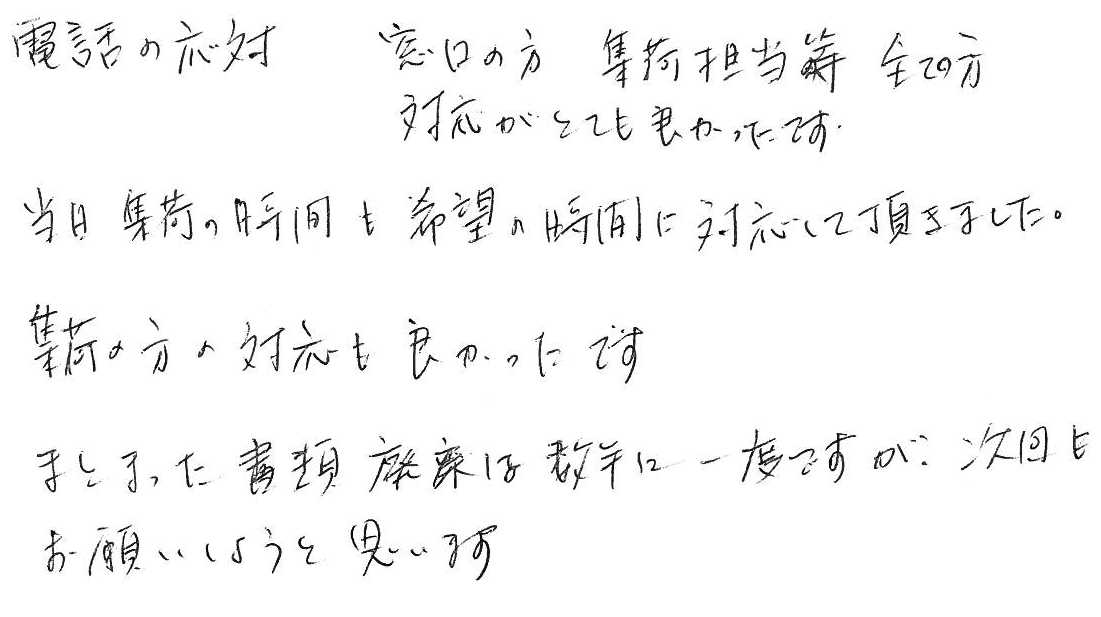 電話の応対　窓口の方　集荷担当等　全ての方
対応がとても良かったです.
当日 集荷の時間も希望の時間に対応して頂きました。
集荷の方の対応も良かったです
まとまった書類廃棄は数年に一度ですが、次回も
お願いしようと思います